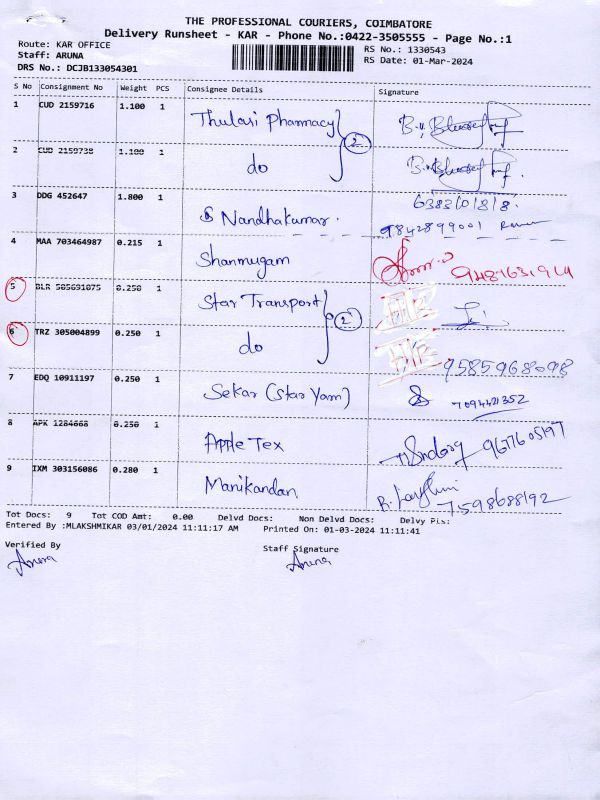 THE PROFESSIONAL COURIERS, COIMBATORE
Delivery Runsheet - KAR - Phone No.:0422-3505555 - Page No.:1
Route: KAR OFFICE
RS No.: 1330543
Staff: ARUNA
RS Date: 01-Mar-2024
DRS No.: DCJB133054301
S No Consignment No Weight PCS Consignee Details Signature
1 CUD 2159716 1.100 1 Thulasi Pharmacy
2
2 CUD 2159738 1.100 1 do
3 DDG 452647 1.800 1 S Nandhakumar.
9842899001
4 MAA 703464987 0.215 1 Shanmugam
5 BLR 505691075 0.250 1 Star Transport
2
6 TRZ 305004899 0.250 1 do 9585968098
7 EDQ 10911197 0.250 1 Sekar (Star Yarn) 7094421352
8 APK 1284668 0.250 1 Apple Tex 9677605197
9 IXM 303156086 0.280 1 Manikandan 7598688192
Tot Docs: 9 Tot COD Amt: 0.00 Delvd Docs: Non Delvd Docs: Delvy Pis:
Entered By :MLAKSHMIKAR 03/01/2024 11:11:17 AM Printed On: 01-03-2024 11:11:41
Verified By Staff Signature
Aruna Aruna